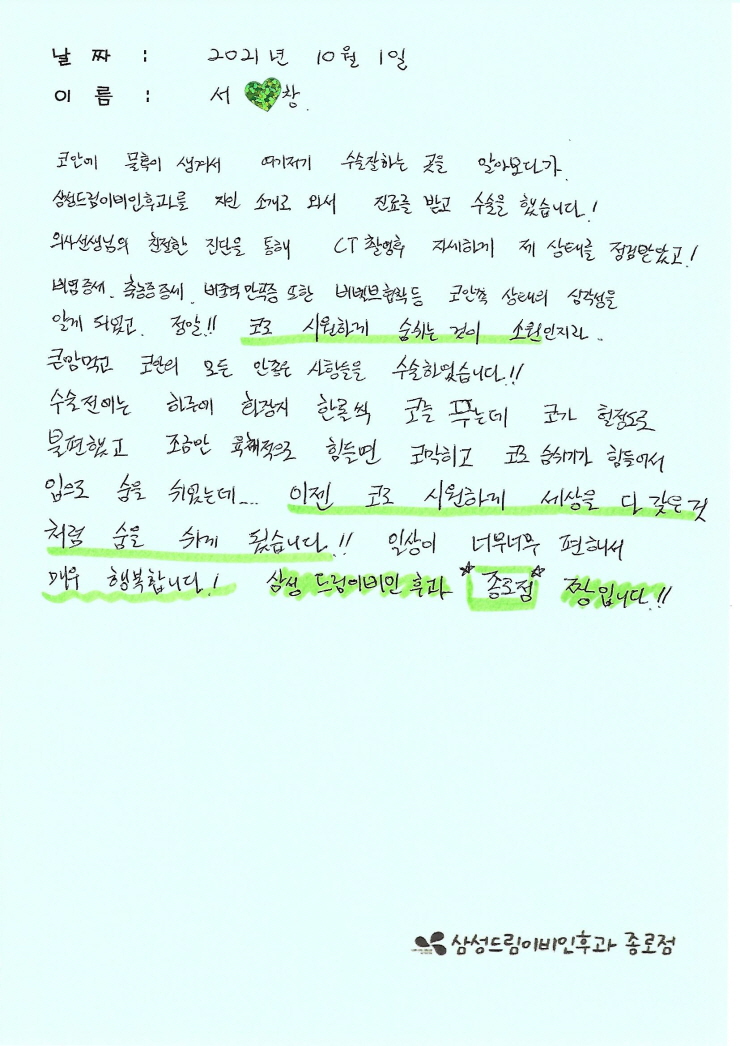 날 짜 : 2021년 10월 1일
이 름 : 서 창.
코안에 물혹이 생겨서 여기저기 수술잘하는 곳을 알아보다가.
삼성드림이비인후과를 지인 소개로 와서 진료를 받고 수술을 했습니다!
의사선생님의 친절한 진단을 통해 CT 촬영후 자세하게 제 상태를 점검받았고!
비염증세. 축농증증세. 비중격만곡증 또한 비밸브협착등 코안쪽 상태의 심각성을
알게 되었고. 정말!! 코로 시원하게 숨쉬는 것이 소원인지라..
큰맘먹고 코안의 모든 안좋은 사항들을 수술하였습니다!!
수술전에는 하루에 화장지 한롤씩 코를 푸는데 코가 헐정도로
불편했고 조금만 육체적으로 힘들면 코막히고 코로 숨쉬기가 힘들어서
입으로 숨을 쉬었는데.... 이젠 코로 시원하게 세상을 다 갖은것
처럼 숨을 쉬게 됬습니다!! 일상이 너무너무 편해서
매우 행복합니다! 삼성 드림이비인후과 *종로점* 짱입니다!!
삼성드림이비인후과 종로점